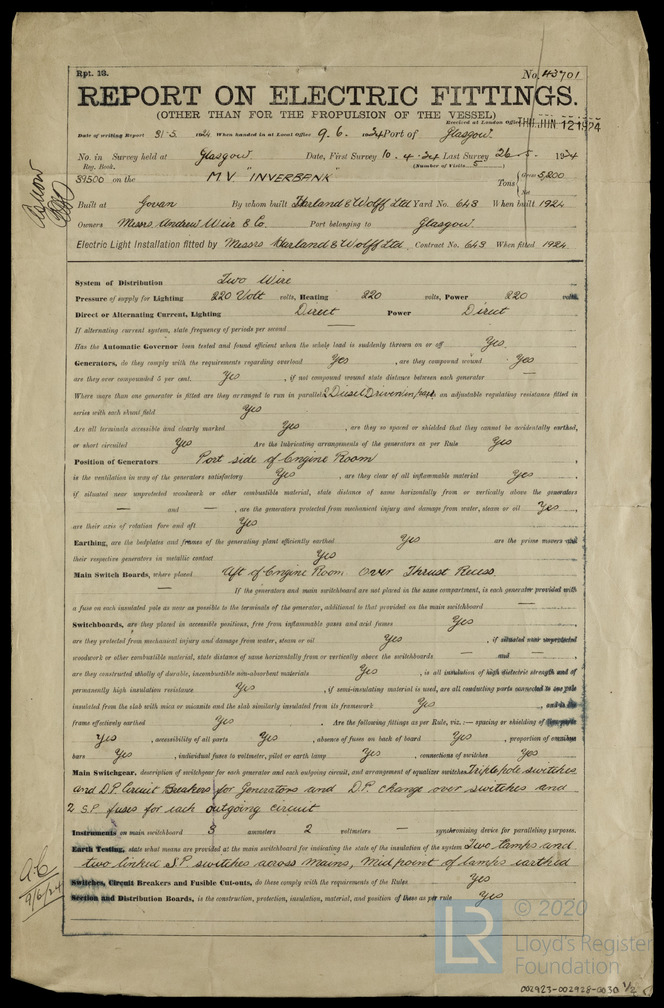 Rpt. 13.
No. 43701
REPORT ON ELECTRIC FITTINGS.
(OTHER THAN FOR THE PROPULSION OF THE VESSEL)
Received at London Office THU. JUN 12 1924
Date of writing Report 31.5. 1924 When handed in at Local Office 9.6. 1924 Port of Glasgow
No. in Survey held at Glasgow. Date, First Survey 10.4.24 Last Survey 26.5. 1924
Reg. Book. (Number of Visits 5)
39500 on the M.V "INVERBANK" Tons { Gross 5,200
Net
Built at Govan By whom built Harland & Wolff Ltd Yard No. 643 When built 1924
Owners Messrs Andrew Weir & Co. Port belonging to Glasgow
Electric Light Installation fitted by Messrs Harland & Wolff Ltd Contract No. 643 When fitted 1924
System of Distribution Two Wire
Pressure of supply for Lighting 220 Volt volts, Heating 220 volts, Power 220 volts.
Direct or Alternating Current, Lighting Direct Power Direct
If alternating current system, state frequency of periods per second —
Has the Automatic Governor been tested and found efficient when the whole load is suddenly thrown on or off Yes
Generators, do they comply with the requirements regarding overload Yes, are they compound wound Yes
are they over compounded 5 per cent. Yes, if not compound wound state distance between each generator —
Where more than one generator is fitted are they arranged to run in parallel 2 Diesel Driven in par, an adjustable regulating resistance fitted in
series with each shunt field Yes
Are all terminals accessible and clearly marked Yes, are they so spaced or shielded that they cannot be accidentally earthed,
or short circuited Yes Are the lubricating arrangements of the generators as per Rule Yes
Position of Generators Port side of Engine Room,
is the ventilation in way of the generators satisfactory Yes, are they clear of all inflammable material Yes,
if situated near unprotected woodwork or other combustible material, state distance of same horizontally from or vertically above the generators
— and —, are the generators protected from mechanical injury and damage from water, steam or oil Yes,
are their axis of rotation fore and aft Yes
Earthing, are the bedplates and frames of the generating plant efficiently earthed Yes are the prime movers and
their respective generators in metallic contact Yes
Main Switch Boards, where placed Aft of Engine Room over Thrust Recess.
— If the generators and main switchboard are not placed in the same compartment, is each generator provided with
a fuse on each insulated pole as near as possible to the terminals of the generator, additional to that provided on the main switchboard —
Switchboards, are they placed in accessible positions, free from inflammable gases and acid fumes Yes,
are they protected from mechanical injury and damage from water, steam or oil Yes, if situated near unprotected
woodwork or other combustible material, state distance of same horizontally from or vertically above the switchboards — and —,
are they constructed wholly of durable, incombustible non-absorbent materials Yes, is all insulation of high dielectric strength and of
permanently high insulation resistance Yes, if semi-insulating material is used, are all conducting parts connected to one pole
insulated from the slab with mica or micanite and the slab similarly insulated from its framework Yes, and is the
frame effectively earthed Yes. Are the following fittings as per Rule, viz.:— spacing or shielding of live parts
Yes, accessibility of all parts Yes, absence of fuses on back of board Yes, proportion of omnibus
bars Yes, individual fuses to voltmeter, pilot or earth lamp Yes, connections of switches Yes.
Main Switchgear, description of switchgear for each generator and each outgoing circuit, and arrangement of equalizer switches Triple pole switches
and D.P. Circuit Breakers for Generators and D.P. change over switches and
2 S.P. fuses for each outgoing circuit
Instruments on main switchboard 3 ammeters 2 voltmeters — synchronising device for paralleling purposes.
Earth Testing, state what means are provided at the main switchboard for indicating the state of the insulation of the system Two lamps and
two linked S.P. switches across mains, Midpoint of lamps earthed
Switches, Circuit Breakers and Fusible Cut-outs, do these comply with the requirements of the Rules Yes
Section and Distribution Boards, is the construction, protection, insulation, material, and position of these as per rule Yes
9/6/24
LR
© 2020
Lloyd's Register
Foundation
002923-002928-0030 1/2